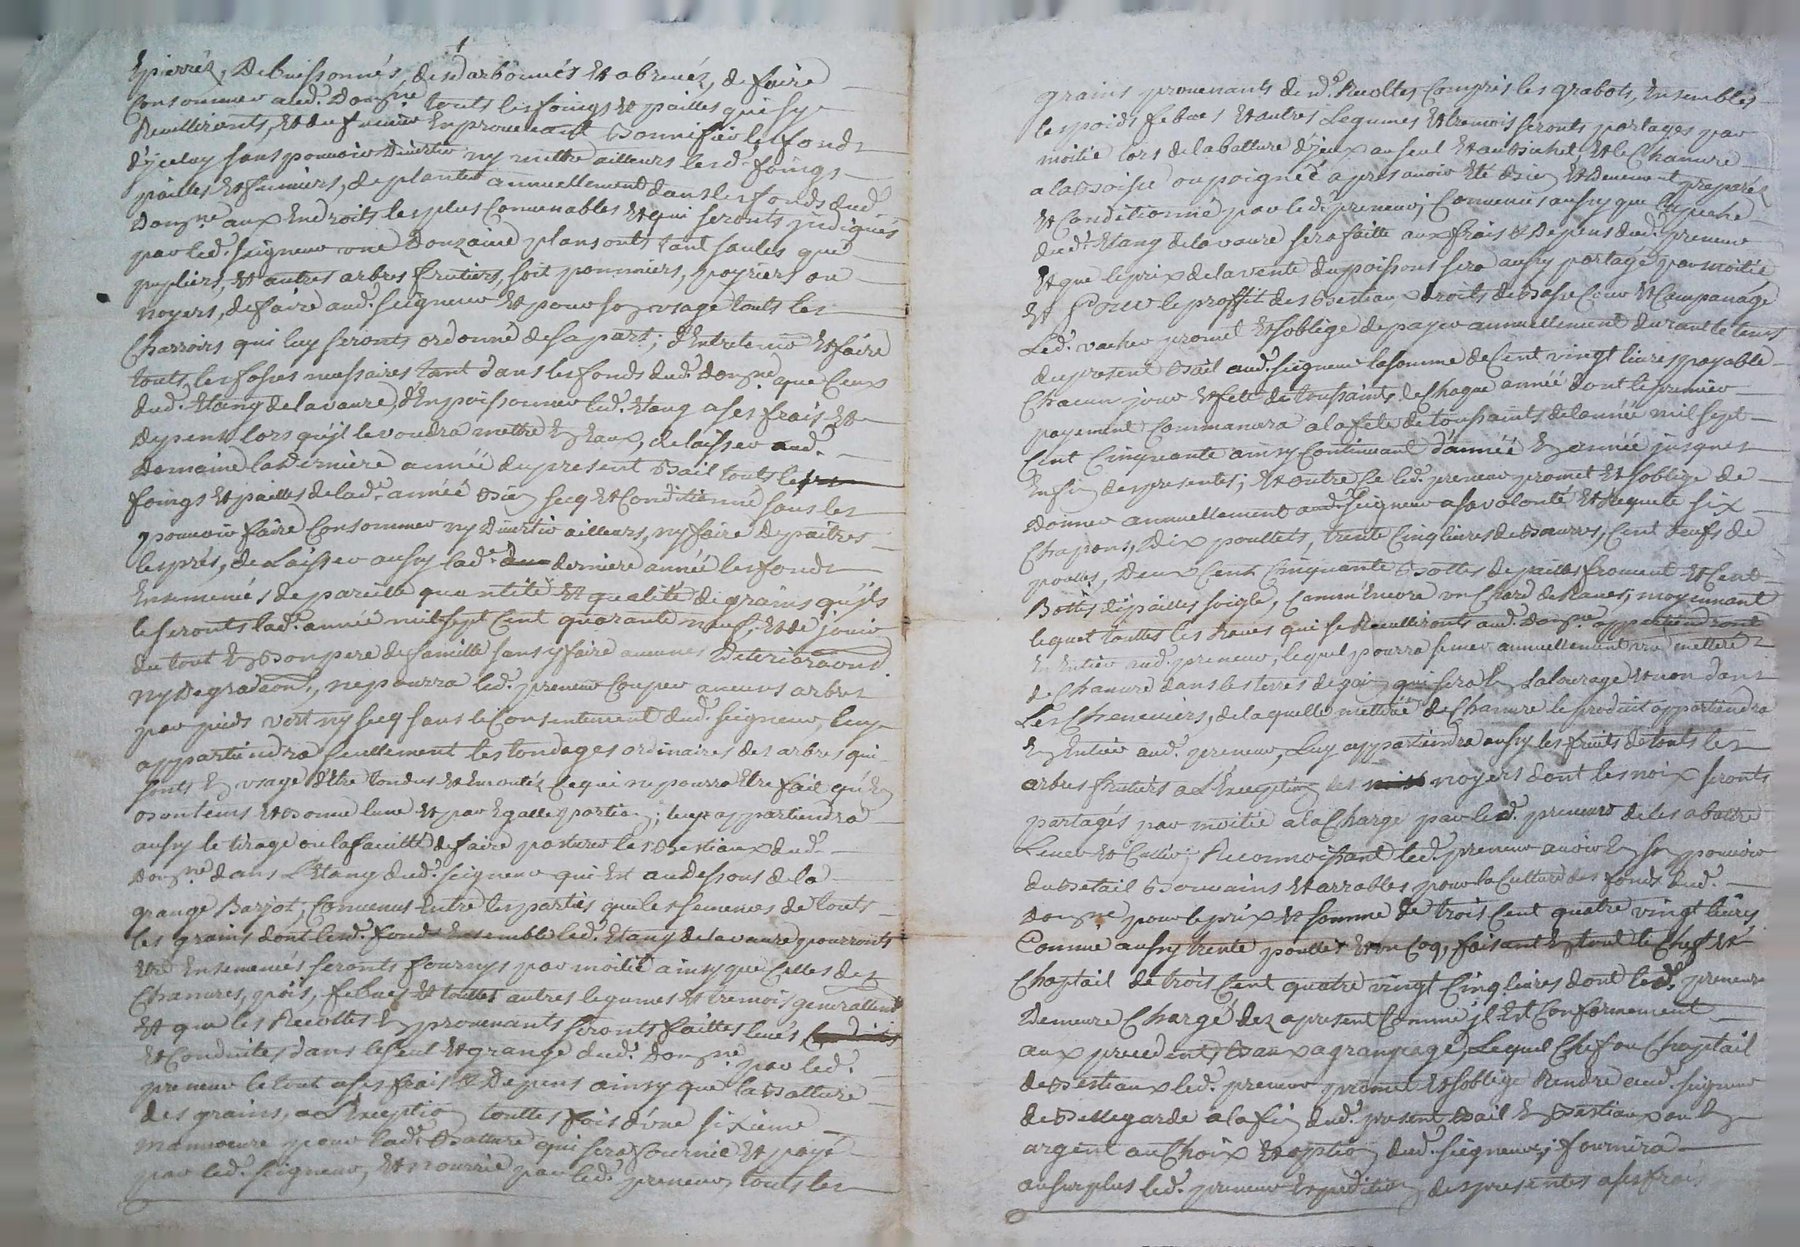 Epierrés, Debuissonnés, desdarbonnés et abreuéz, de faire
Consommer aud. Dom.ne touts les foings et pailles qui sy
Recuillironts, et du fumier En prouenant Bonnifier les fonds
d'yceluy sans pouuoir Diuertir ny mettre ailleurs lesd. foings
pailles et fumiers, de planter annuellement dans les fonds dud.
Dom.ne aux Endroits les plus Conuenables et qui seronts jndiqués
par led. seigneur une Douzaine plansonts tant saules que
pupliers, et autres arbres fruitiers, soit pommiers, poyriers ou
noyers, de faire aud. seigneur et pour so usage touts les
Charroirs qui luy seronts ordonné de sa part; d'Entretenir et faire
touts les fosses necessaires tant dans les fonds dud. Dom.ne que Ceux
dud. Etang de lavaure, d'Enpoissonner led. Etang a ses frais et
Depens lors qu'jl le voudra mettre E Eaux, de laisser aud.
Domaine la Derniere année du present Bail touts les
foings et pailles de lad. année Bie secq et Conditionné sans les
pouuoir faire Consommer ny Diuertir ailleurs, ny faire Depaitres
les prés, de Laisser aussy lad. derniere année les fonds
Ensemencés de pareille quantité et qualité de grains qu'jls
le seronts lad. année mil sept Cent quarante neuf, et de jouir
du tout E Bon pere de famille sans y faire aucunes Deterioraons
ny Degradaons, ne pourra led. preneur Couper aucuns arbres
par pieds vert ny secq sans le Consentement dud. seigneur, luy
appartiendra seullement les tondages ordinaires des arbres qui
sonts E usage d'être tondus et Emoutés, Ce qui ne pourra être fait qu'E
Bon tems et Bonne lune et par Egalle portion; luy appartiendra
aussy le tirage ou la faculté de faire pasturer les Bestiaux dud.
Dom.ne dans L'Etang dud. seigneur qui Est au dessous de la
grange Barjot, Conuenus Entre les parties que les semences de touts
les grains dont lesd. fonds Ensemble led. Etang de lavaure pourronts
Etre Ensemencés seronts fournys par moitié ainsy que Celles des
Chanures, pois, febues et touttes autres legumes et tremois generallemt
et que les Recoltes E prouenants seronts faittes leués
et Conduites dans le seul et grange dud. Dom.ne par led.
preneur le tout a ses frais et Depens ainsy que la Batture
des grains, a L'Exception touttes fois d'une sixieme
manoeure pour lad. Batture qui sera fournie et payé
par led. seigneur, et nourrie par led. preneur, touts les
grains prouenants desd. Recoltes Compris les grabots, Ensembles
les poids febues et autres Legumes et tremois seronts partagés par
moitié lors de la batture d'jceux au seul et au Bichet, et le Chanure
a la Boisse ou poignée apres auoir Eté Bie et Deuement preparéz
et Conditionné par led. preneur; Conuenus aussy que la peche
dud. Etang de lavaure sera faitte aux frais et Depens dud. preneur
et que le prix de la vente du poissons sera aussy partagé par moitié
et Pour le proffit des Bestiaux droits de Basse Cour et Campanage
Led. vacher promet et s'oblige de payer annuellement durant le tems
du present Bail aud. seigneur la somme de Cent vingt liures payable
Chacun jour et fete de toussaints de Chaque année dont le premier
payement Commancera a la fête de toussaints de l'année mil sept
Cent Cinquante ainsy Continuant d'année E année jusques
En fi des presentes; et outre Ce led. preneur promet et s'oblige de
Donner annuellement aud. seigneur a sa volonté et Requete six
Chapons, Dix poullets, trente Cinq liures de Beurres, Cent oeufs de
poulles, Deux Cent Cinquante Bottes de pailles froment et Cent
Bottes de pailles soigle, Comme Encore un Chard de Raues, moyennant
lequel touttes les Raues qui se Recuillironts aud. Dom.ne appartiendront
En Entier aud. preneur, lequel pourra semer annuellement une metteré
de Chanure dans les terres de qui sera E Labourage et non dans
Les Cheneuiers, de laquelle metteré de Chanure le produit appartiendra
E Entier aud. preneur, Luy appartiendra aussy les fruits de touts les
arbres fruitiers a L'Exception des noyers dont les noix seronts
partagés par moitié a la Charge par led. preneur de les abattre
Leuer et Cullir; Reconnoissant led. preneur auoir E so pouuoir
du Betail Bouuains et arrables pour la Culture des fonds dud.
Dom.ne pour le prix et somme de trois Cent quatre vingt liures
Comme aussy trente poulles et un Coq, faisant E tout le Chef et
Chaptail de trois Cent quatre vingt Cinq liures dont led. preneur
Demeure Chargé dez apresent Comme jl Est Conformement
aux precedents Baux a grangeage, Lequel Chef ou Chaptail
de Bestiaux led. preneur promet et s'oblige Rendre aud. seigneur
de Bellegarde a la fi dud. present Bail E Bestiaux ou E
argent au Choix et optio dud. seigneur; fournira
au surplus led. preneur Expeditio des presentes a ses frais